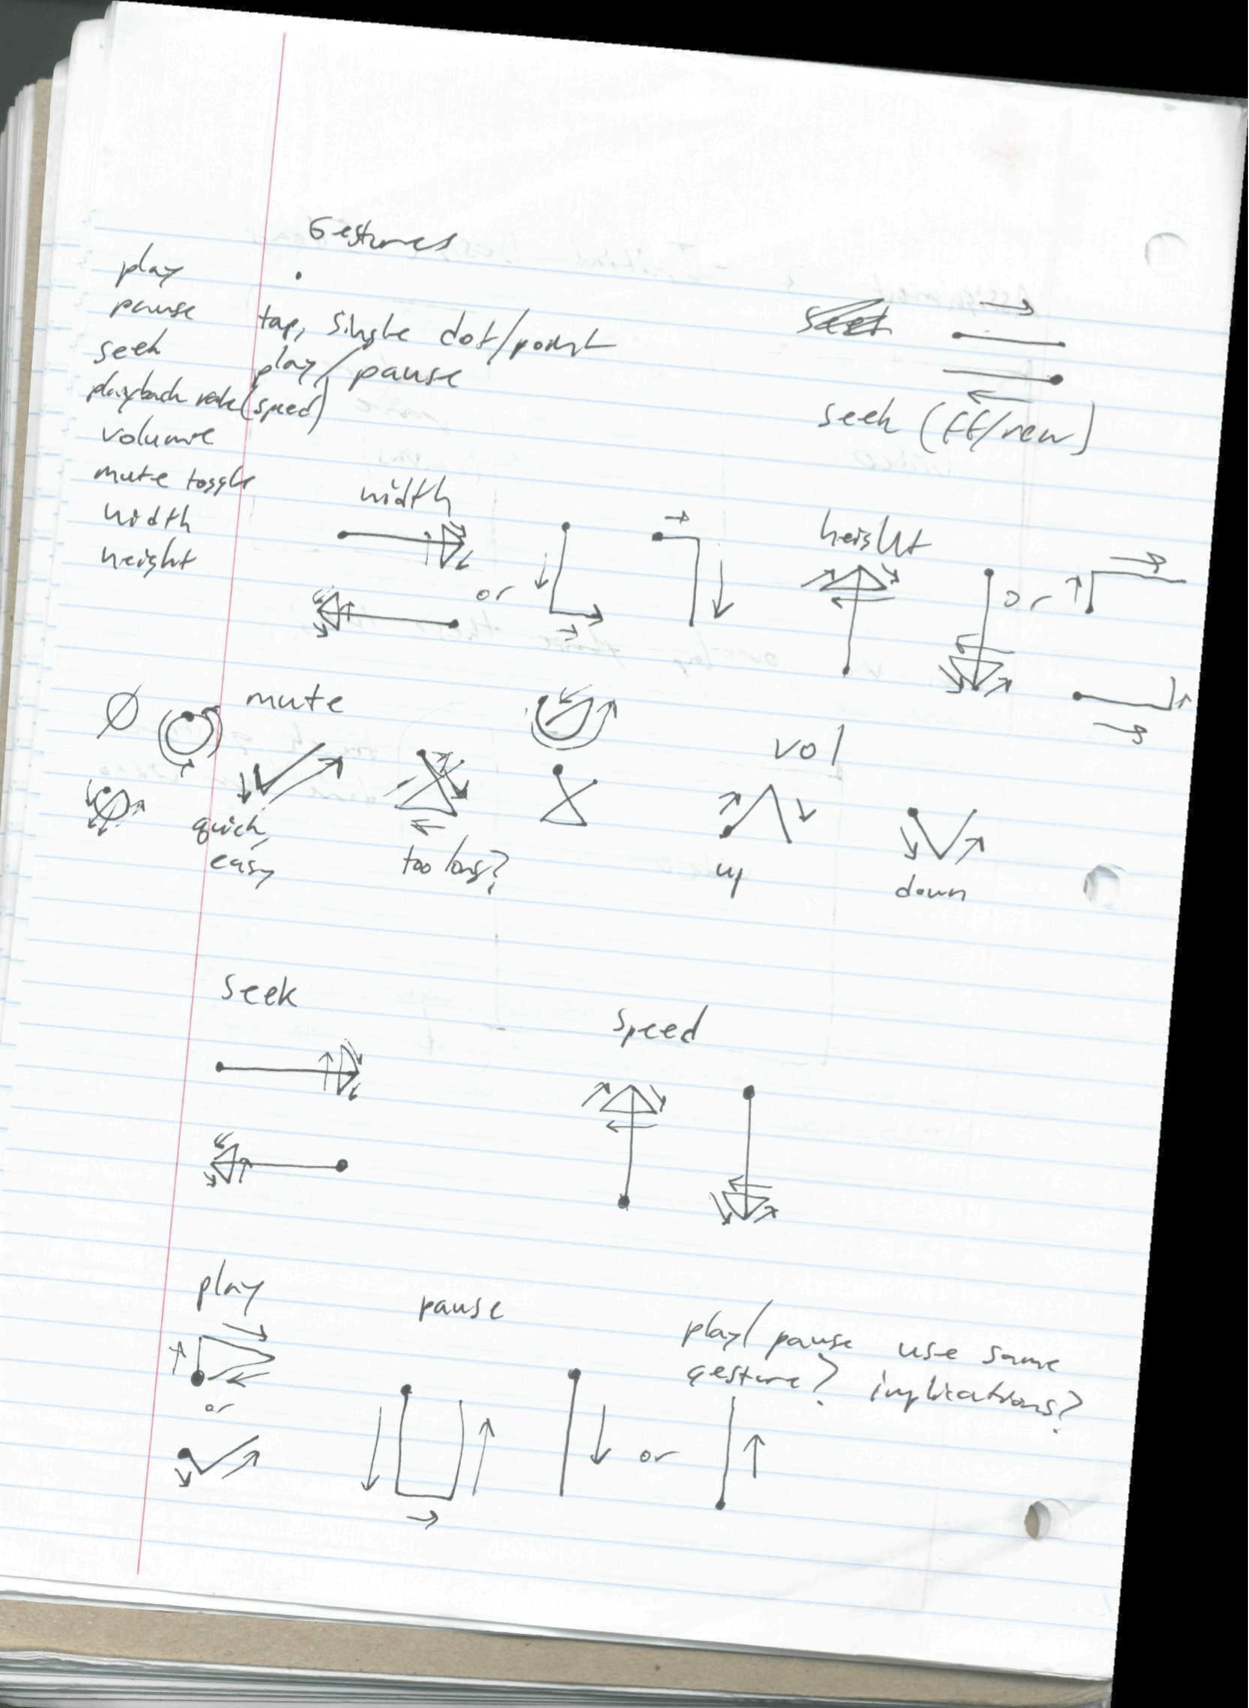 Gestures
play
pause
seek
playback rate (speed)
volume
mute toggle
width
height
tap, single dot/point
play/pause
seek
seek (ff/rew)
width
or
height
or
mute
quick,
easy
too long?
vol
up
down
seek
speed
play
or
pause
or
play/pause use same
gesture? implications?